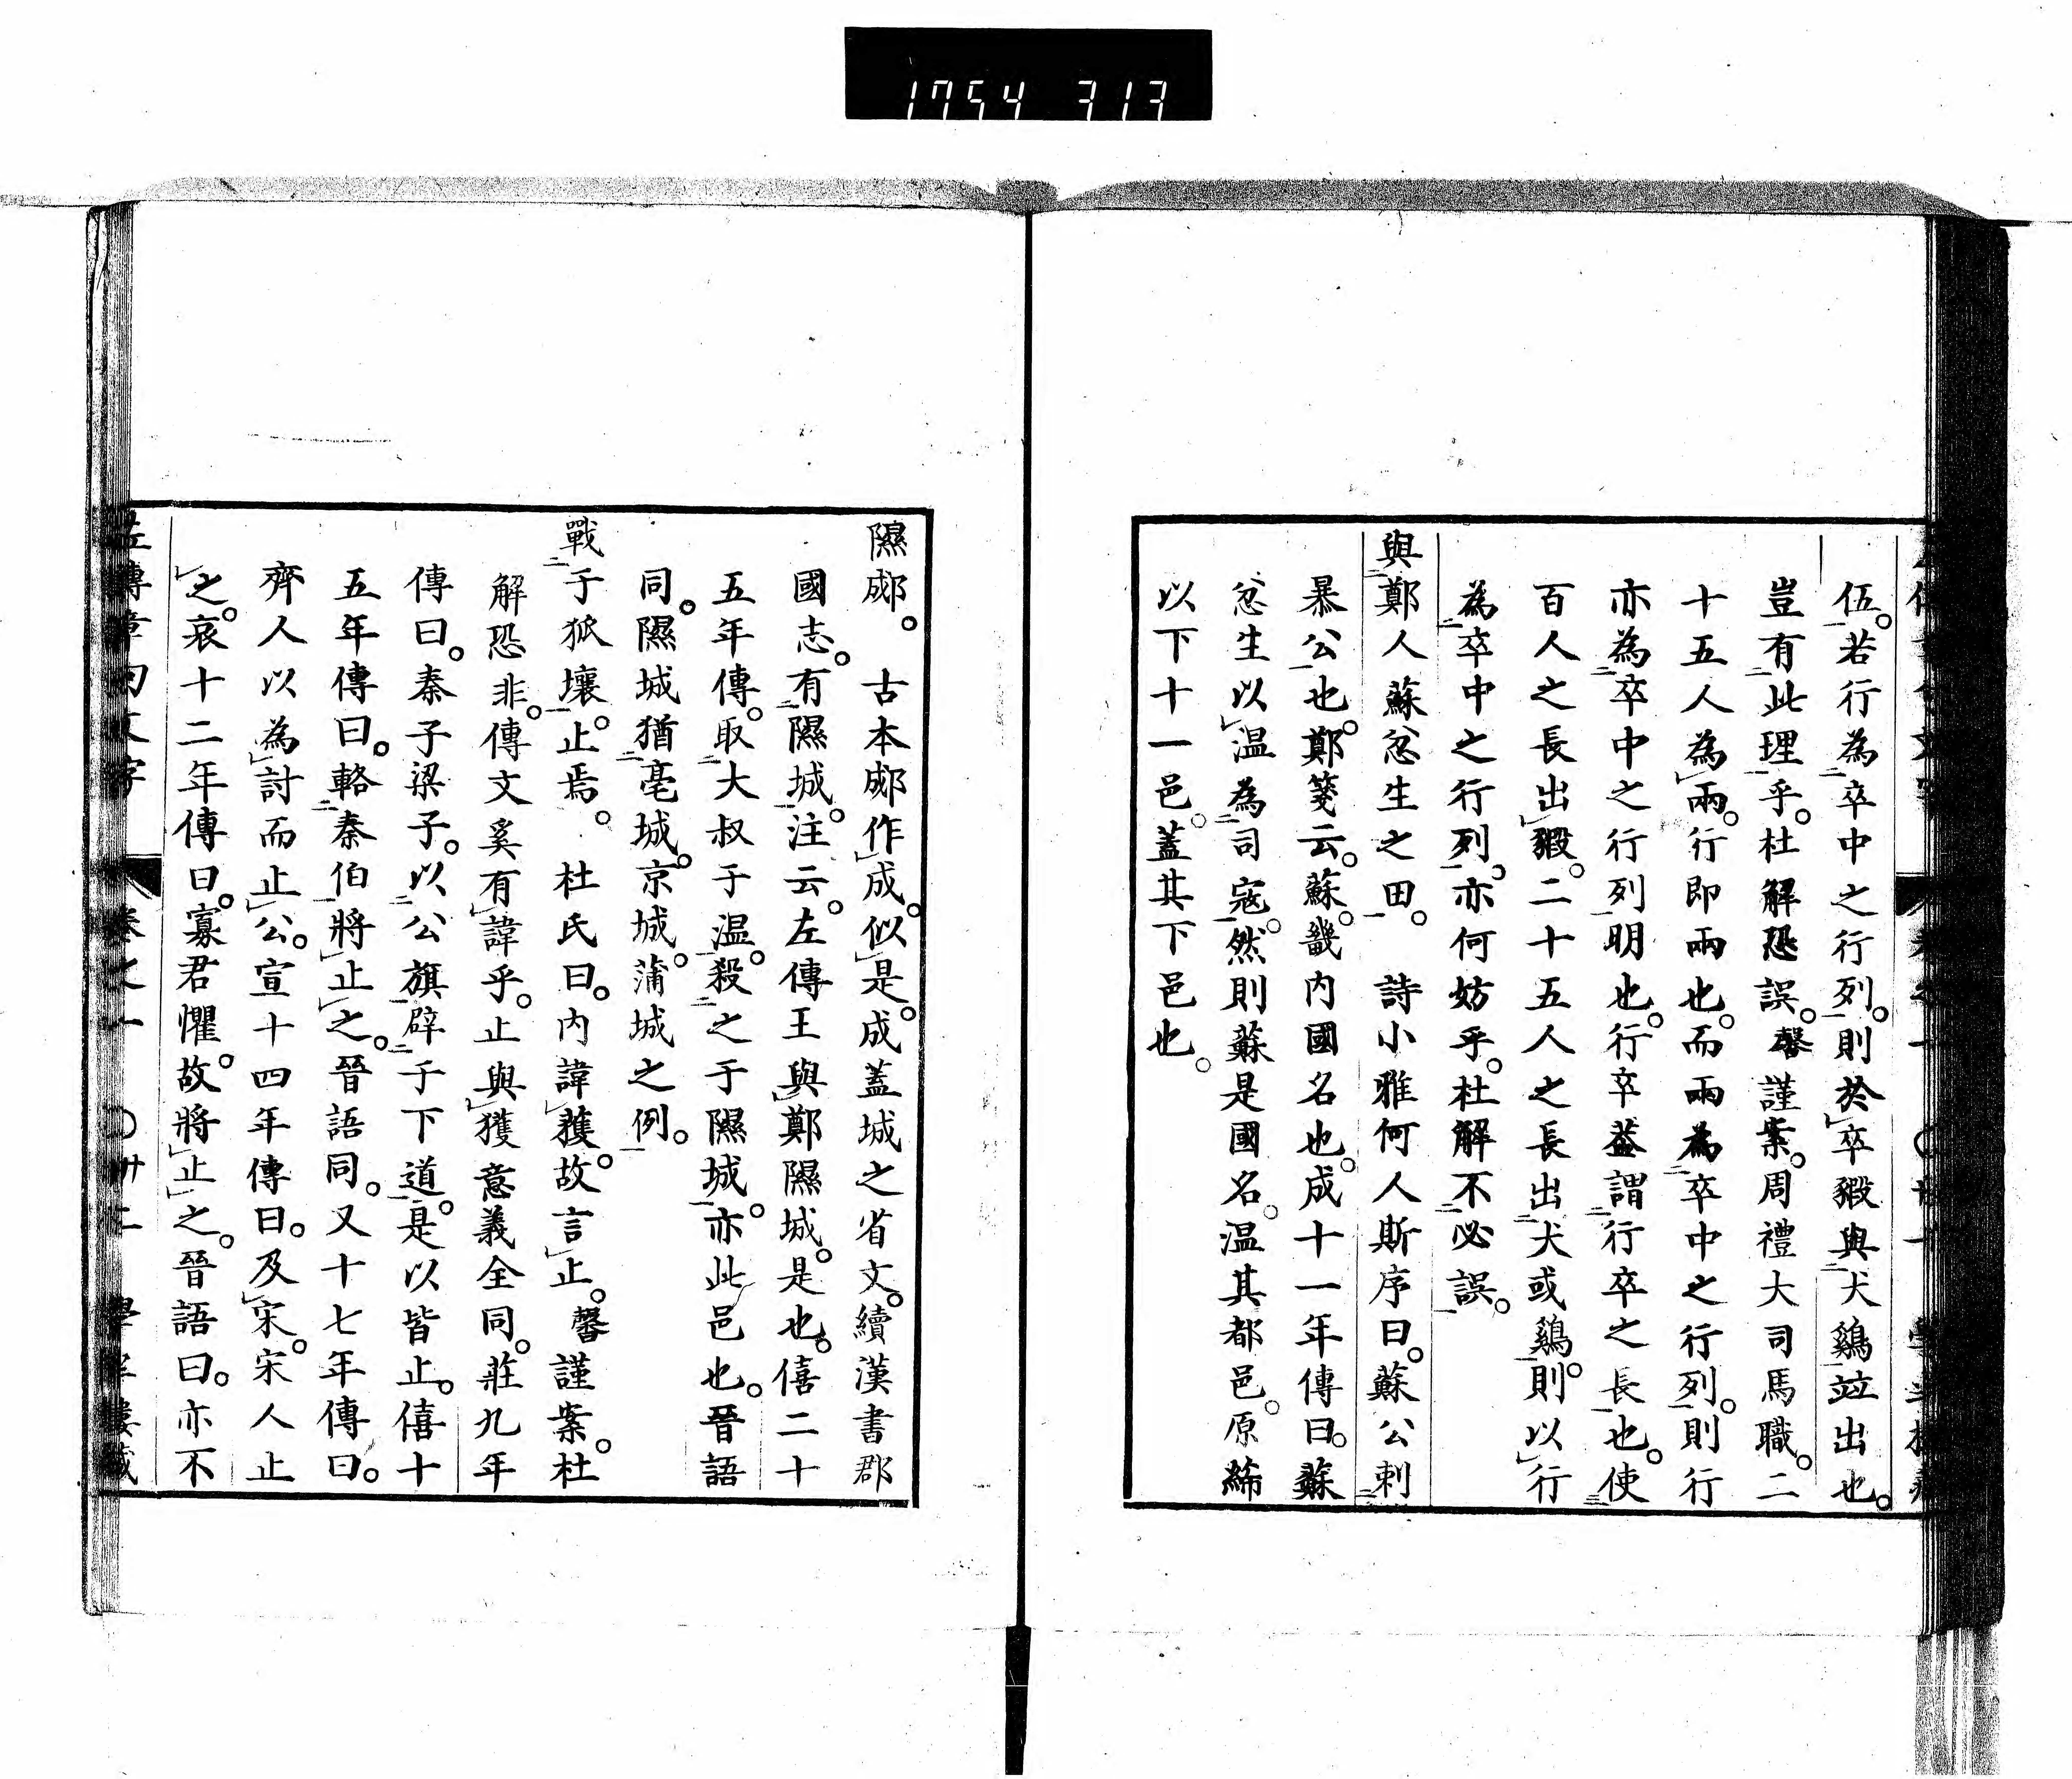 1754 313
伍。若行為卒中之行列。則於卒豭與犬鷄竝出也。
豈有此理乎。杜解恐誤。馨謹案。周禮大司馬職。二
十五人為兩。行即兩也。而兩為卒中之行列。則行
亦為卒中之行列明也。行卒葢謂行卒之長也。使
百人之長出豭。二十五人之長出犬或鷄。則以行
為卒中之行列。亦何妨乎。杜解不必誤。
與鄭人蘇忿生之田。 詩小雅何人斯序曰。蘇公刺
暴公也。鄭箋云。蘇。畿内國名也。成十一年傳曰。蘇
忿生以温為司寇。然則蘇是國名。温其都邑。原絺
以下十一邑。蓋其下邑也。
隰郕。 古本郕作成。似是。成蓋城之省文。續漢書郡
國志。有隰城。注云。左傳王與鄭隰城。是也。僖二十
五年傳。取大叔于温。殺之于隰城。亦此邑也。晉語
同。隰城猶亳城。京城。蒲城之例。
戰于狐壤。止焉。 杜氏曰。内諱獲。故言止。馨謹案。杜
解恐非。傳文奚有諱乎。止與獲意義全同。莊九年
傳曰。秦子梁子。以公旗辟于下道。是以皆止。僖十
五年傳曰。輅秦伯將止之。晉語同。又十七年傳曰。
齊人以為討而止公。宣十四年傳曰。及宋。宋人止
之。哀十二年傳曰。寡君懼。故將止之。晉語曰。亦不
卷之一 〇卅二